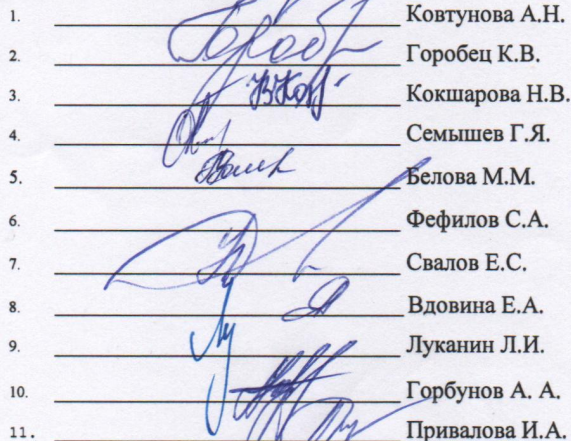 1. Ковтунова А.Н.
2. Горобец К.В.
3. Кокшарова Н.В.
4. Семышев Г.Я.
5. Белова М.М.
6. Фефилов С.А.
7. Свалов Е.С.
8. Вдовина Е.А.
9. Луканин Л.И.
10. Горбунов А. А.
11. Привалова И.А.